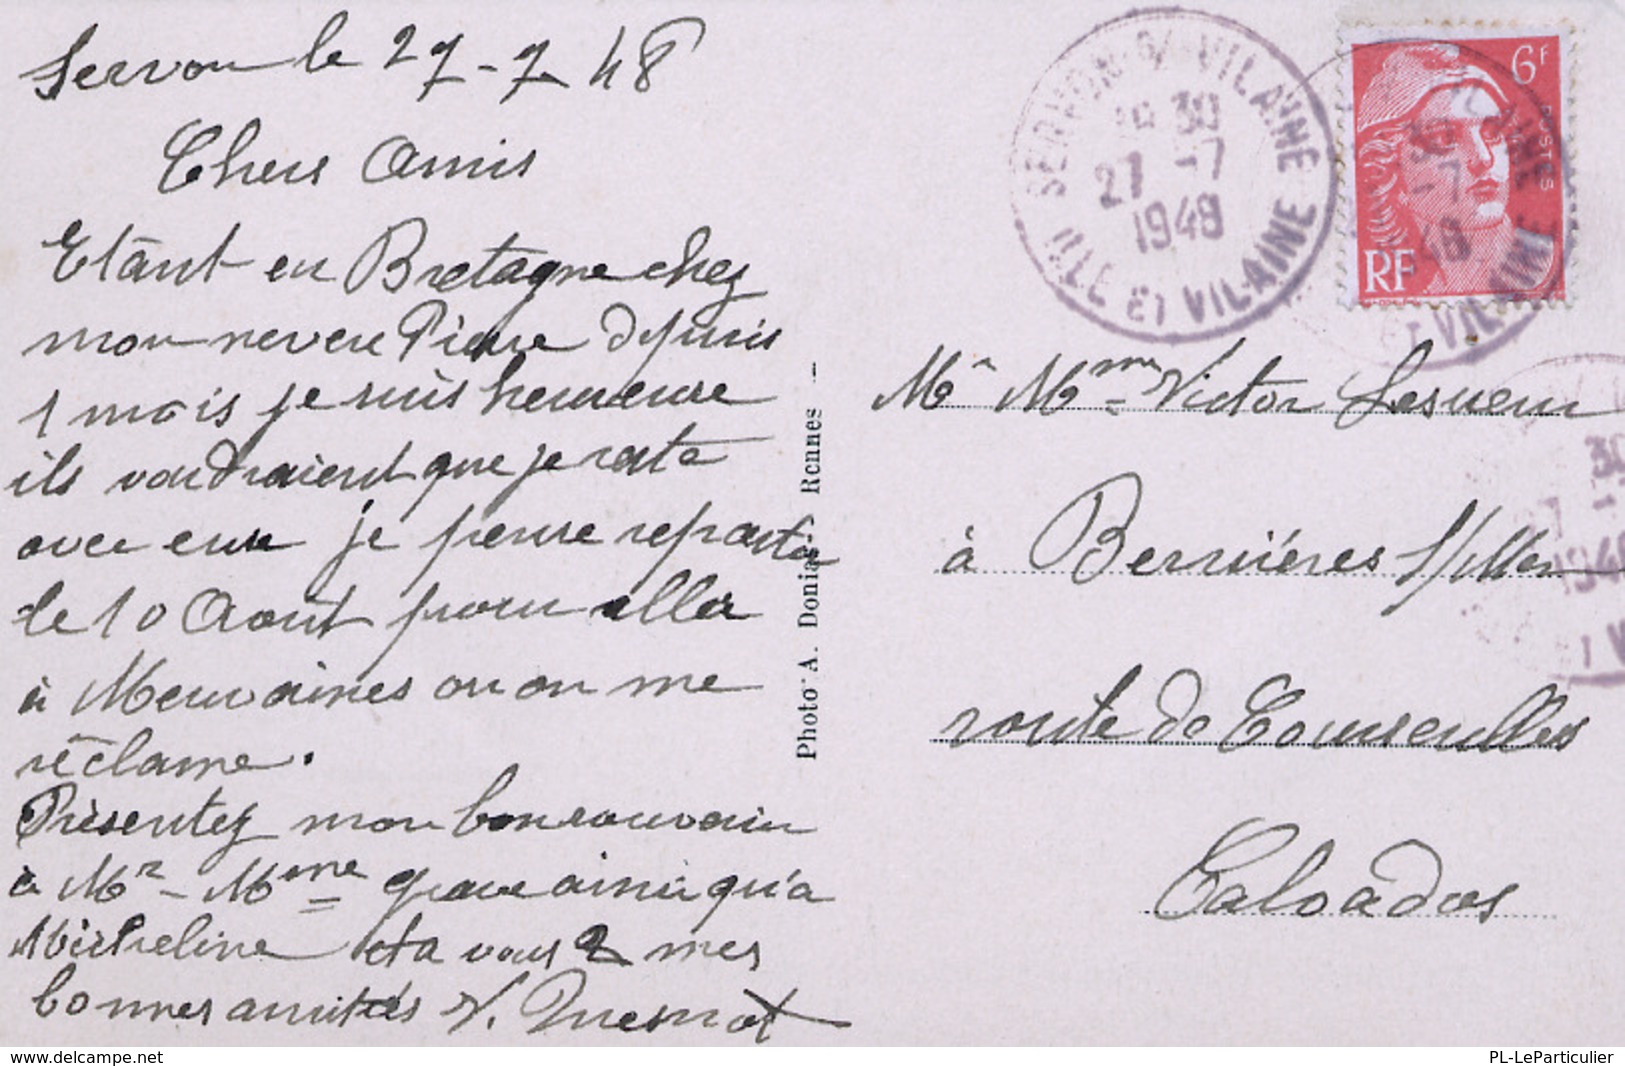 Servon le 27-7-48
Chers Amis
Etant en Bretagne chez
mon neveu Pierre depuis
1 mois je suis heureuse
ils voudraient que je reste
avec eux je pense repartir
le 10 Aout pour aller
à Meuvaines ou on me
réclame.
Présentez mon bon souvenir
à Mr - Mme ainsi qu'a
Micheline et a vous 2 mes
bonnes amitiés V. Quesnot
Photo A. Donias - Rennes -
SERVON S/ VILAINE
30
27 -7
1948
ILLE ET VILAINE
6F
POSTES
RF
Mr Mme Victor Lesueur
à Bernières s/Mer
route de Courseulles
Calvados
www.delcampe.net
PL-LeParticulier